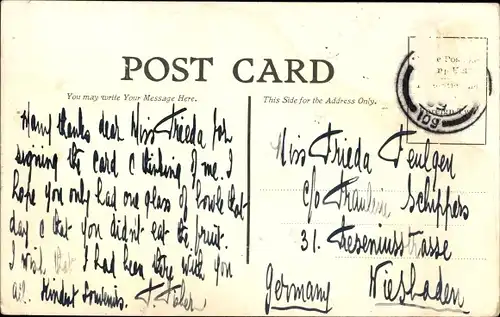 POST CARD
You may write Your Message Here.
This Side for the Address Only.
Many thanks dear Miss Frieda for
signing the card & thinking of me. I
hope you only had one glass of bowle that
day & that you didn't eat the fruit.
I wish that I had been there with you
all. Kindest Souvenirs.
Miss Frieda Feulgen
c/o Fräulein Schippers
31. Freseniusstrasse
Germany Wiesbaden